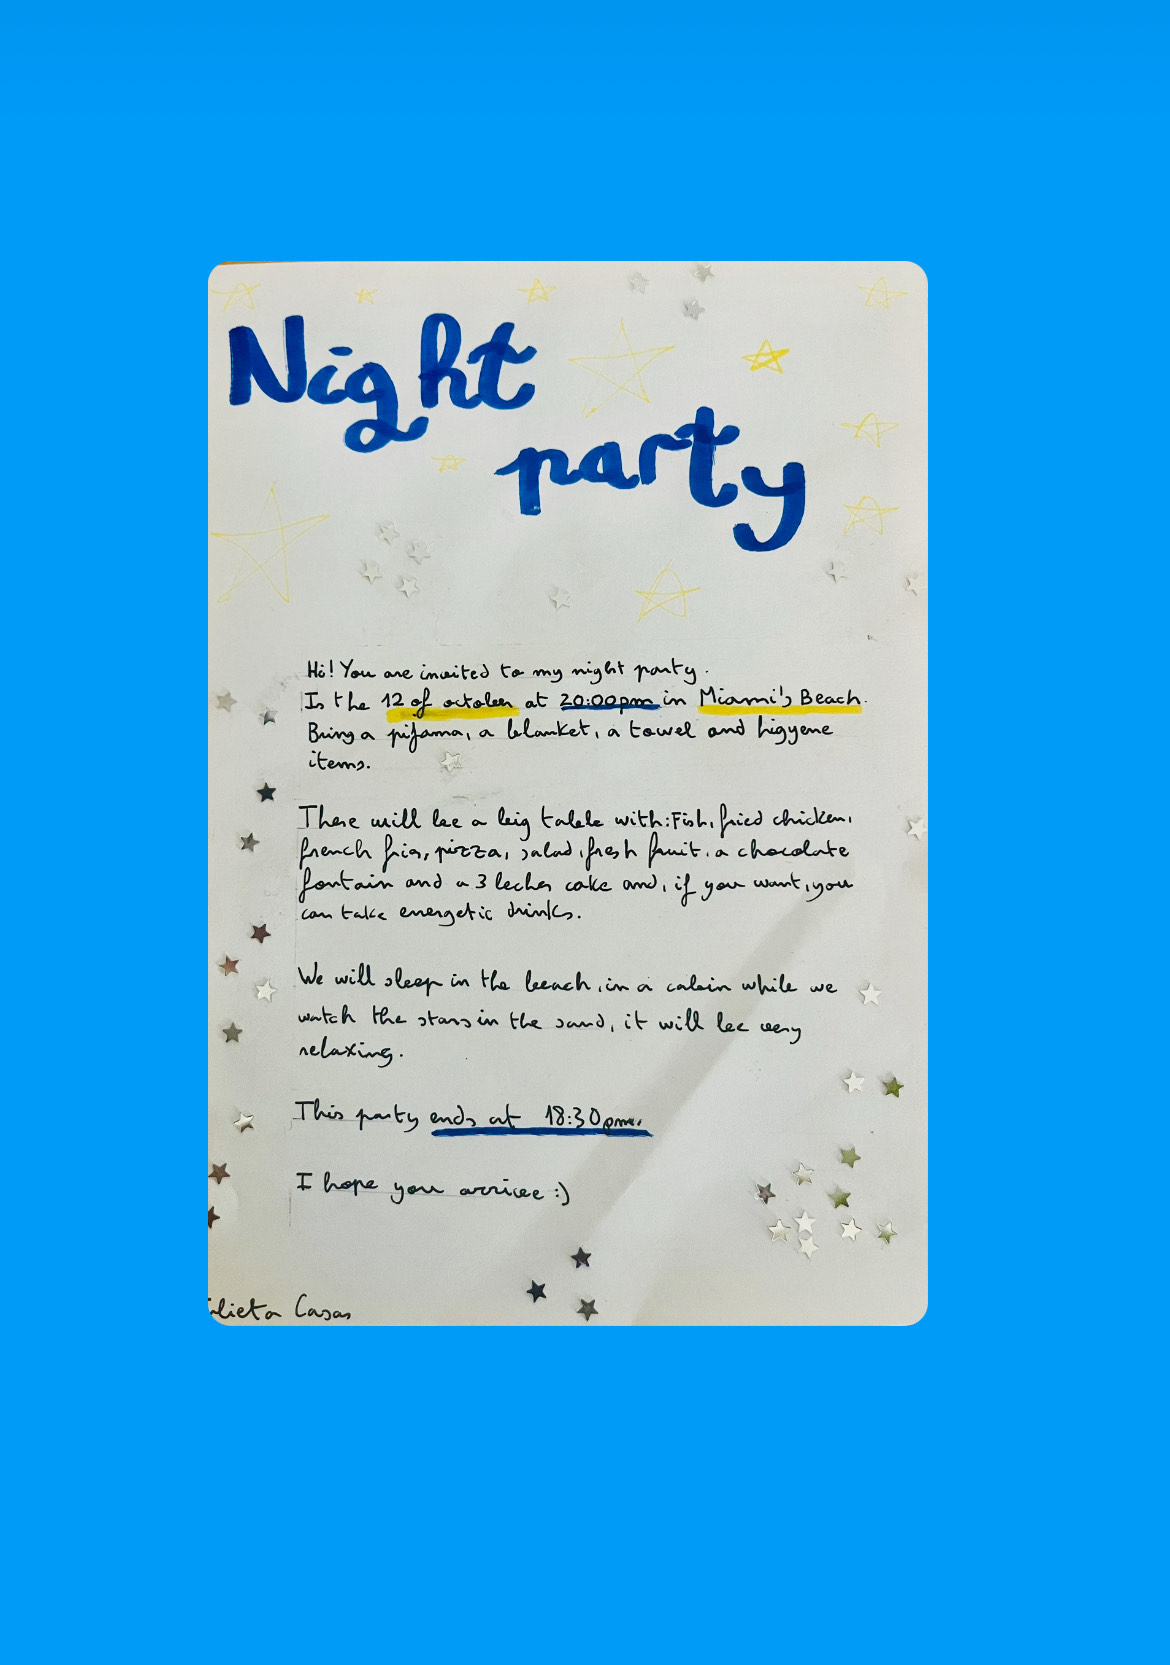 Night
party
Hi! You are invited to my night party.
Is the 12 of october at 20:00pm in Miami's Beach.
Bring a pijama, a blanket, a towel and higyene
items.
There will be a big table with: Fish, fried chicken,
french fries, pizza, salad, fresh fruit, a chocolate
fontain and a 3 leches cake and, if you want, you
can take energetic drinks.
We will sleep in the beach, in a cabin while we
watch the stars in the sand, it will be very
relaxing.
This party ends at 18:30pm.
I hope you arrivee :)
Casas